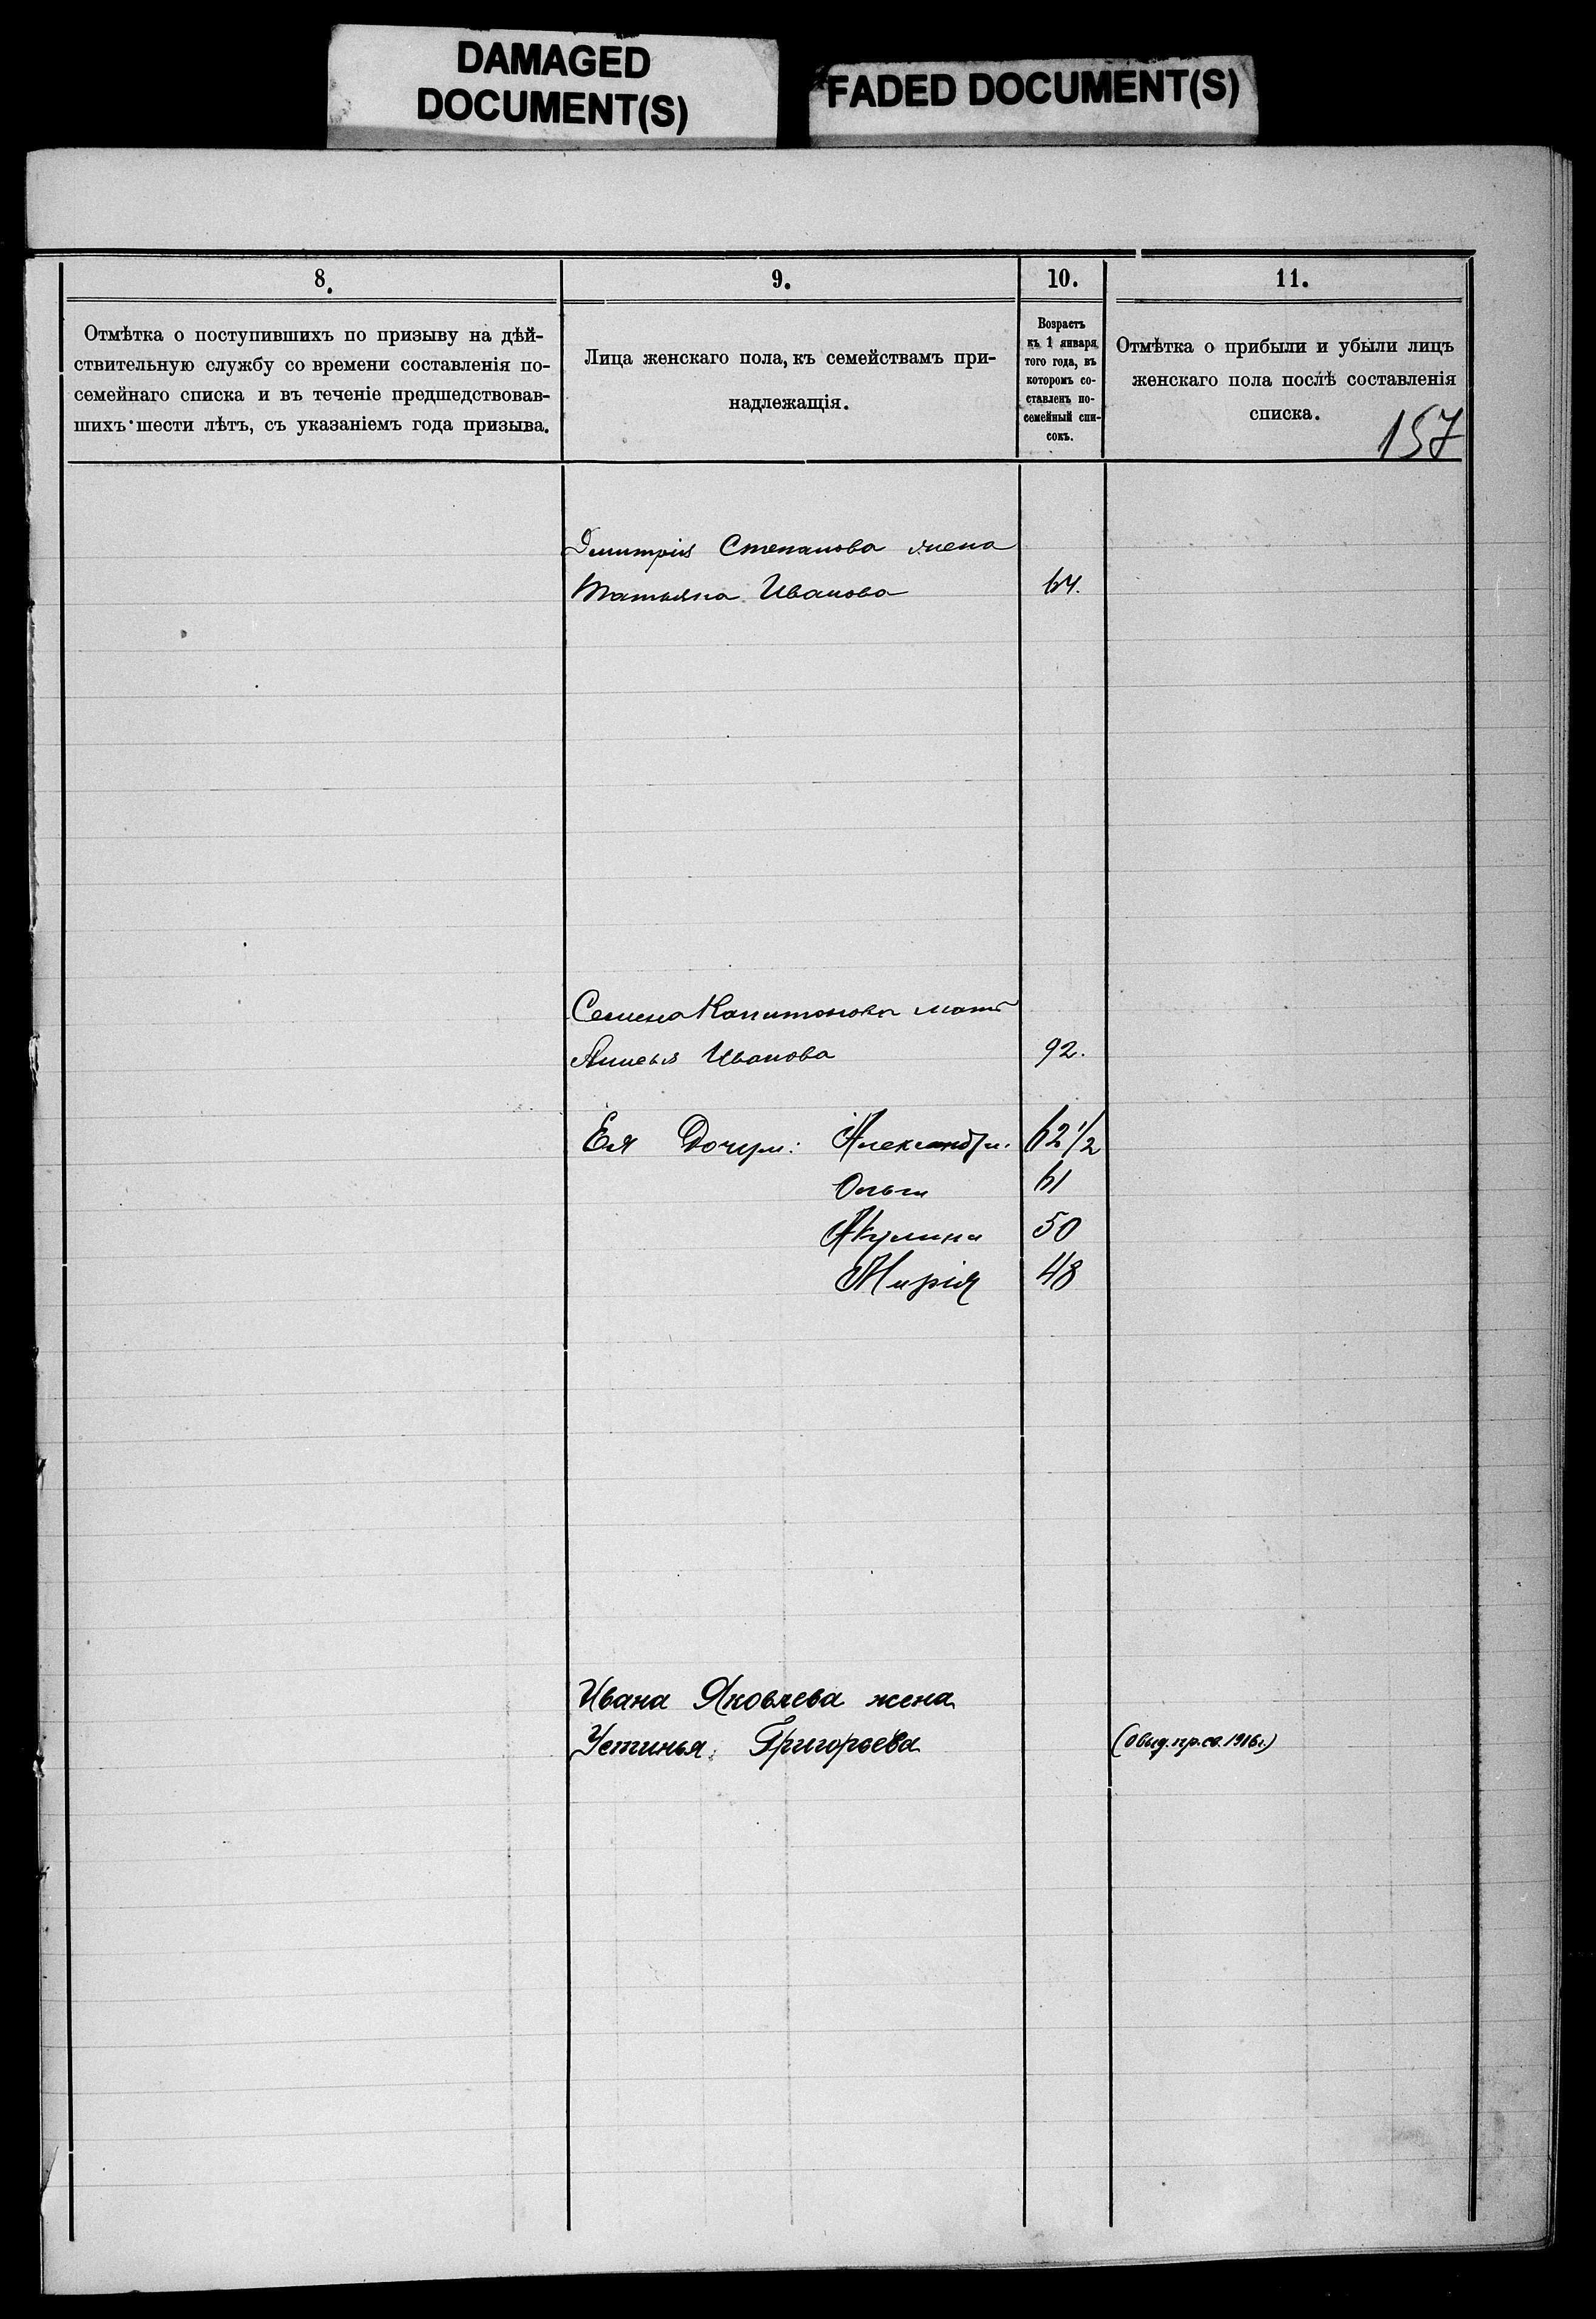 DAMAGED
DOCUMENT(S)
FADED DOCUMENT(S)
8.
Отмѣтка о поступившихъ по призыву на дѣй-
ствительную службу со времени составленія по-
семейнаго списка и въ теченіе предшедствовав-
шихъ шести лѣтъ, съ указаніемъ года призыва.
9.
Лица женскаго пола, къ семействамъ при-
надлежащія.
10.
Возрастъ
къ 1 января
того года, въ
которомъ со-
ставленъ по-
семейный спи-
сокъ.
11.
Отмѣтка о прибыли и убыли лицъ
женскаго пола послѣ составленія
списка.
157
Дмитрія Степанова жена
Татьяна Иванова 64.
Семена Капитонова мать
Иванова 92.
Ея Дочери: Александра. 62 1/2
Ольга 61
Акулина 50
Марія 48
Ивана Яковлева жена
Устинья Григорьева (о выд. пр. св. 1916г.)